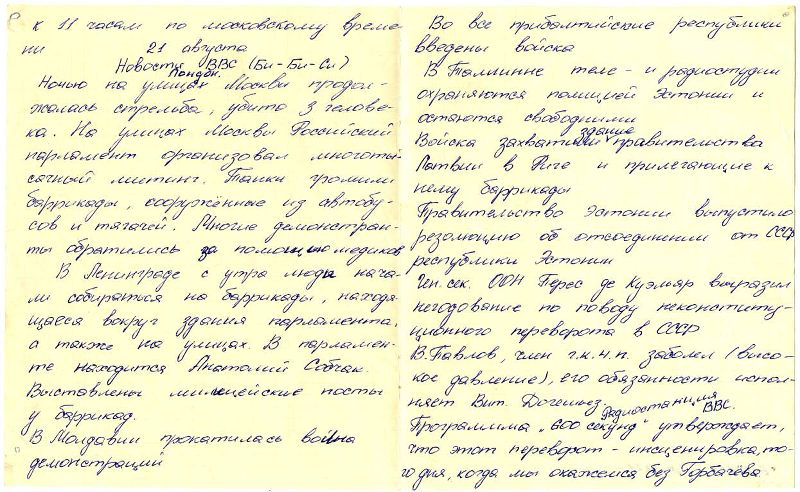 к 11 часам по московскому време
ни 21 августа
Новости ВВС (Би-Би-Си)
Лондон.
Ночью на улицах Москвы продол-
жалась стрельба, убито 3 челове-
ка. На улицах Москвы Российский
парламент организовал многоты-
сячный митинг. Танки громили
баррикады, сооружённые из автобу-
сов и тягачей. Многие демонстран-
ты обратились за помощью медиков
В Ленинграде с утра люди нача-
ли собираться на баррикады, находя
щаеся вокруг здания парламента,
а также на улицах. В парламен-
те находится Анатолий Собчак.
Выставлены милицейские посты
у баррикад.
В Молдавии прокатилась война
демонстраций
Во все прибалтийские республики
введены войска
В Таллинне теле- и радиостудии
охраняются полицией Эстонии и
остаются свободными
Войска захватили здание правительства
Латвии в Риге и прилегающие к
нему баррикады
Правительство Эстонии выпустило
резолюцию об отсоединении от СССР
республики Эстонии
Ген. сек. ООН Перес де Куэльяр выразил
негодование по поводу неконститу-
ционного переворота в СССР
В. Павлов, член г.к.ч.п. заболел (высо-
кое давление), его обязанности испол-
няет Вит. Догешьез.
Радиостанция ВВС.
Программа „600 секунд" утверждает,
что этот переворот - инсценировка, то-
го дня, когда мы окажемся без Горбачёва